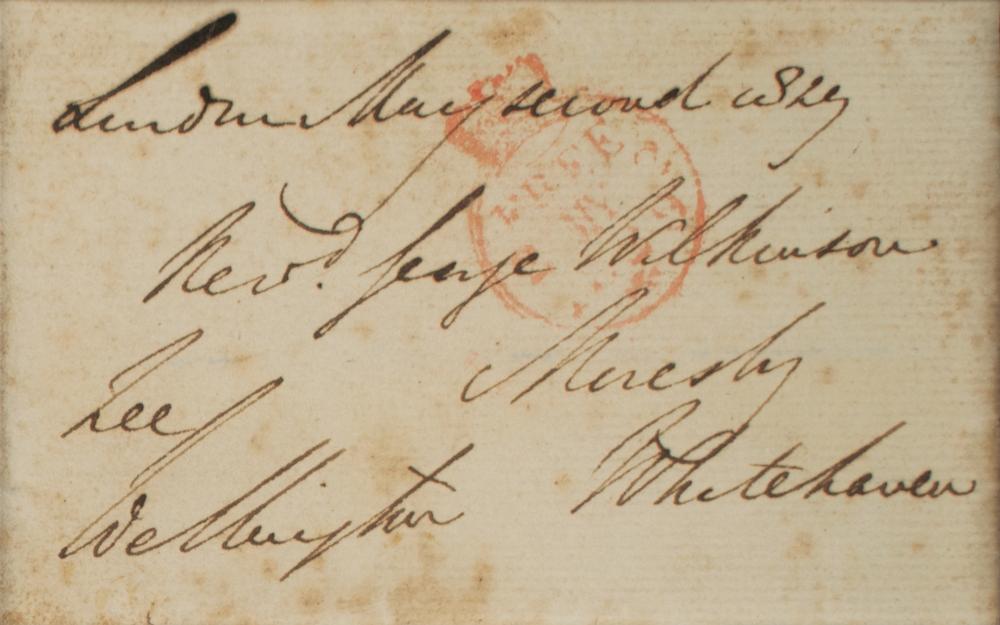 London May second 1829
Revd. George Wilkinson
Moresby
Free
Whitehaven
Wellington
FREE